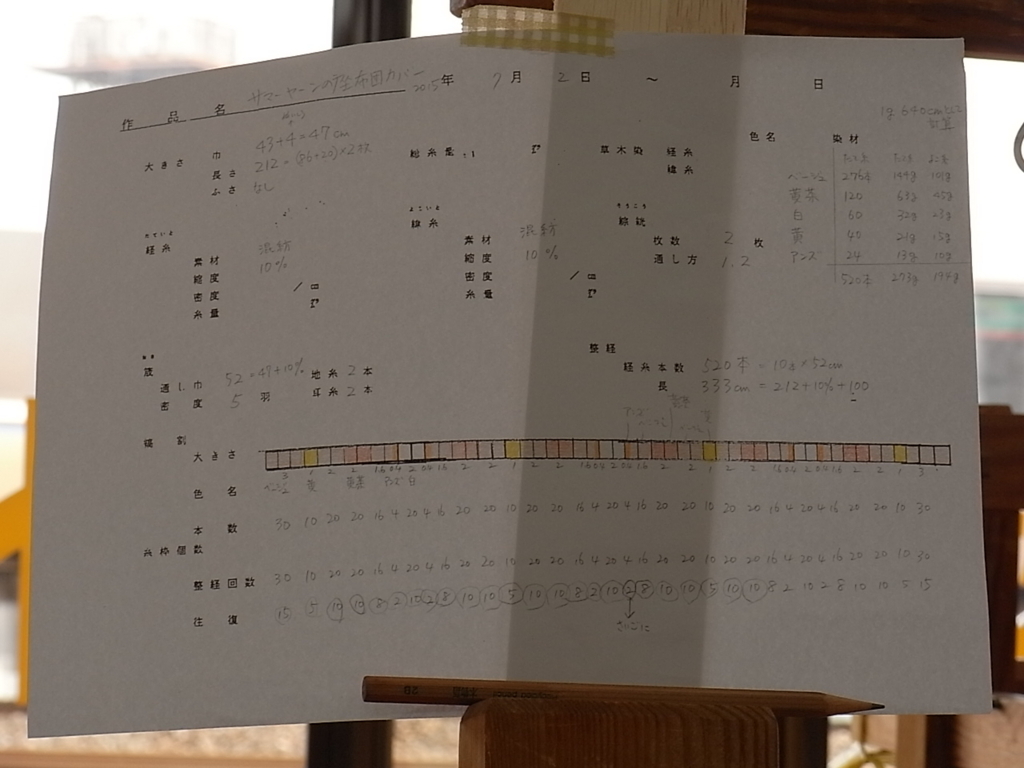 作品名 サマーヤーンの座布団カバー 2015年 7月 2日 ～ 月 日
1g 640cmとして
計算
大きさ 巾 43+4=47cm
長さ 212=(86+20)×2枚
ふさ なし
総糸量
草木染 経糸
緯糸
色名 染材
ベージュ 276本 144g 101g
黄茶 120 63g 45g
白 60 32g 23g
黄 40 21g 15g
アンズ 24 13g 10g
520本 273g 194g
たていと
経糸
素材 混紡
縮度 10%
密度 /cm
糸量
よこいと
緯糸
素材 混紡
縮度 10%
密度 /cm
糸量
そうこう
綜絖
枚数 2枚
通し方 1.2
おさ
筬
通し巾 52=47+10% 地糸 2本
密度 5羽 耳糸 2本
整経
経糸本数 520本=10本×52cm
長 333cm=212+10%+100
縞割
大きさ 3 1 2 2 1.6 0.4 2 0.4 1.6 2 2 1 2 2 1.6 0.4 2 0.4 1.6 2 2 1 2 2 1.6 0.4 2 0.4 1.6 2 2 1 3
色名 ベージュ 黄 黄茶 アンズ 白
本数 30 10 20 20 16 4 20 4 16 20 20 10 20 20 16 4 20 4 16 20 20 10 20 20 16 4 20 4 16 20 20 10 30
糸枠個数
整経回数 30 10 20 20 16 4 20 4 16 20 20 10 20 20 16 4 20 4 16 20 20 10 20 20 16 4 20 4 16 20 20 10 30
往復 15 5 10 10 8 2 10 2 8 10 10 5 10 10 8 2 10 2 8 10 10 5 10 10 8 2 10 2 8 10 10 5 15
さいごに
2B